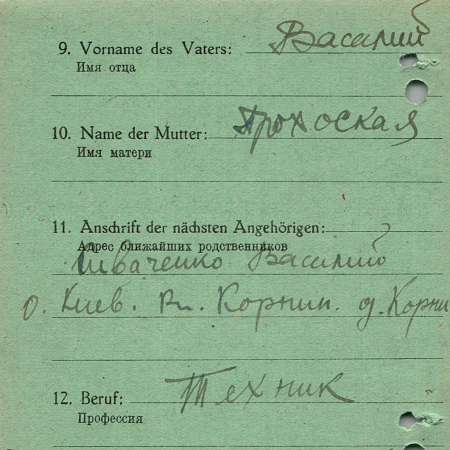 9. Vorname des Vaters: Василий
Имя отца
10. Name der Mutter: Прохоская
Имя матери
11. Anschrift der nächsten Angehörigen:
Адрес ближайших родственников
Иваченко Василий
о. Киев. Рп. Корнин. д. Корни
12. Beruf: Техник
Профессия